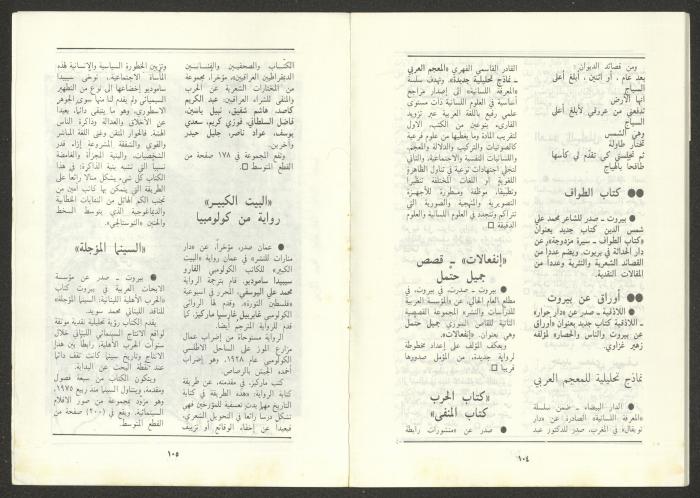 ومن قصائد الديوان:
بعد عام، أو اثنين، أبلغ أعلى
السياج
أنها الأرض
تدفعني من عروقي لأبلغ أعلى
السياج
وهي الشمس
تختار طاولة
ثم تجلسني كي تقدّم لي كأسها
طافحاً بالهياج
●● كتاب الطواف
● بيروت ـ صدر للشاعر محمد علي
شمس الدين كتاب جديد بعنوان
«كتاب الطواف ـ سيرة مزدوجة» عن
دار الحداثة في بيروت. ويضم عدداً من
القصائد الشعرية والنثرية وعدداً من
المقالات النقدية.
●● أوراق عن بيروت
● اللاذقية ـ صدر عن «دار حوار»
ـ اللاذقية كتاب جديد بعنوان «أوراق
عن بيروت والناس والحصار» لمؤلفه
زهير غزاوي.
نماذج تحليلية للمعجم العربي
● الدار البيضاء ـ ضمن سلسلة
«المعرفة اللسانية» الصادرة عن «دار
توبقال» في المغرب، صدر للدكتور عبد
القادر الفاسي الفهري «المعجم العربي
ـ نماذج تحليلية جديدة». وتهدف سلسلة
«المعرفة اللسانية» إلى إصدار مراجع
أساسية في العلوم اللسانية ذات مستوى
علمي رفيع باللغة العربية عبر تزويد
القارىء بنوعين من الكتب، الأول
لتقريب المادة وما يعطيها من علوم فرعية
كالصوتيات والتركيب والدلالة والمعجم.
واللسانيات النفسية والاجتماعية، والثاني
لتحلي اجتهادات نوعية في تناول الظاهرة
اللغوية أو اللغات المختلفة تنظيراً
وتطبيقاً، موظفة ومطورة للأجهزة
التصويرية والمنهجية والصورية التي
تتراكم وتتجدد في العلوم اللسانية والعلوم
الدقيقة □
«إنفعالات» ـ قصص
جميل حتمل
● بيروت ـ صدرت، في بيروت، في
مطلع العام الحالي، عن «المؤسسة العربية
للدراسات والنشر» المجموعة القصصية
الثانية للقاص السوري جميل حتمل
وهي بعنوان: «إنفعالات».
ويعكف المؤلف على إعداد مخطوطة
لرواية جديدة، من المؤمل صدورها
قريباً □
«كتاب الحرب
كتاب المنفى»
● صدر عن «منشورات رابطة
١٠٤
الكتّاب والصحفيين والفنانين
الديمقراطيين العراقيين»، مؤخراً، مجموعة
من المختارات الشعرية عن الحرب
والمنفى للشعراء العراقيين: عبد الكريم
كاصد، هاشم شفيق، نبيل ياسين،
فاضل السلطاني، فوزي كريم، سعدي
يوسف، عواد ناصر، جليل حيدر
وآخرين.
وتقع المجموعة في ١٧٨ صفحة من
القطع المتوسط □
«البيت الكبير»
رواية من كولومبيا
● عمان صدر، مؤخراً، عن «دار
منارات للنشر» في عمان رواية «البيت
الكبير» للكاتب الكولومبي الفارو
سيبيدا ساموديو. قام بترجمة الرواية
محمد علي اليوسفي، المحرر في اسبوعية
«فلسطين الثورة». وقدم لها الروائي
الكولومبي غابرييل غارسيا ماركيز، كما
قدم للرواية المترجم أيضاً.
الرواية مستوحاة من إضراب عمال
مزارع الموز على الساحل الأطلسي
الكولومبي عام ١٩٢٨، وهو إضراب
أخمده الجيش بالرصاص.
كتب ماركيز، في مقدمته، عن طريقة
كتابة الرواية: «هذه الطريقة في كتابة
التاريخ مهما بدت تعسفية للمؤرخين فهي
تشكل درساً رائعاً في التحويل الشعري.
فبعيداً عن إخفاء الوقائع أو تزييف
وتزيين الخطورة السياسية والانسانية لهذه
المأساة الاجتماعية، توخى سيبيدا
ساموديو إخضاعها إلى نوع من التطهير
السيميائي ولم يقدم لنا منها سوى الجوهر
الاسطوري، وهو ما يتبقى دائماً، بعيداً
عن الأخلاق والعدالة وذاكرة الناس
الهشة. فالحوار المتقن وغنى اللغة المباشر
والقوي والشفقة المشروعة إزاء قدر
الشخصيات، والبنية المجزأة والغامضة
نسبياً التي تشبه بنية الذاكرة: في هذا
الكتاب كل شيء يشكل مثالاً رائعاً على
الطريقة التي يتمكن بها كاتب أمين من
تجنب الكم الهائل من النفايات الخطابية
والديماغوجية الذي يتوسط السخط
والحنين «النوستالجي».
«السينما المؤجلة»
● بيروت ـ صدر عن مؤسسة
الابحاث العربية في بيروت كتاب
«الحرب الأهلية اللبنانية: السينما المؤجلة»
للناقد اللبناني محمد سويد.
يقدم الكتاب رؤية تحليلية نقدية موثقة
لواقع الانتاج السينمائي اللبناني خلال
سنوات الحرب الأهلية، رابطاً بين هذا
الانتاج وتاريخ سينما كانت تقف دائماً
عند نقطة البحث عن البداية.
ويتكون الكتاب من سبعة فصول
ومقدمة، ويتناول السينما منذ ربيع ١٩٧٥،
وهو مزود بمجموعة من صور الافلام
السينمائية. ويقع في (٢٠٠) صفحة من
القطع المتوسط.
١٠٥